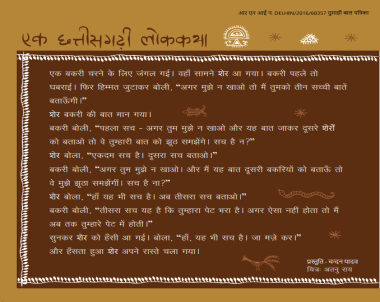 आर एन आई क्र. DELHIN/2016/68357 दुमाही बाल पत्रिका
एक छत्तीसगढ़ी लोककथा
एक बकरी चरने के लिए जंगल गई। वहाँ सामने शेर आ गया। बकरी पहले तो
घबराई। फिर हिम्मत जुटाकर बोली, “अगर मुझे न खाओ तो मैं तुमको तीन सच्ची बातें
बताऊँगी।”
शेर बकरी की बात मान गया।
बकरी बोली, “पहला सच - अगर तुम मुझे न खाओ और यह बात जाकर दूसरे शेरों
को बताओ तो वे तुम्हारी बात को झूठ समझेंगे। सच है न?”
शेर बोला, “एकदम सच है। दूसरा सच बताओ।”
बकरी बोली, “अगर तुम मुझे न खाओ। और मैं यह बात दूसरी बकरियों को बताऊँ तो
वे मुझे झूठा समझेंगी। सच है ना?”
शेर बोला, “हाँ यह भी सच है। अब तीसरा सच बताओ।”
बकरी बोली, “तीसरा सच यह है कि तुम्हारा पेट भरा है। अगर ऐसा नहीं होता तो मैं
अब तक तुम्हारे पेट में होती।”
सुनकर शेर को हँसी आ गई। बोला, “हाँ, यह भी सच है। जा मज़े कर।”
और हँसता हुआ शेर अपने रास्ते चला गया।
प्रस्तुति - चन्दन यादव
चित्रः अतनु राय